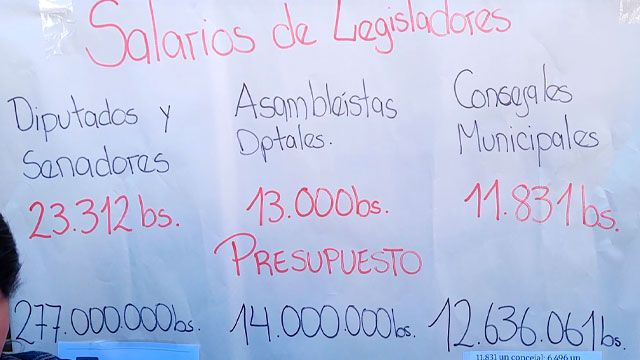 Salarios de Legisladores
Diputados y
Senadores
23.312 bs.
Asambleístas
Dptales.
13.000 bs.
Consejales
Municipales
11.831 bs.
PRESUPUESTO
277.000.000 bs.
14.000.000 bs.
12.636.061 bs.
11.831 un concejal: 6.496 un